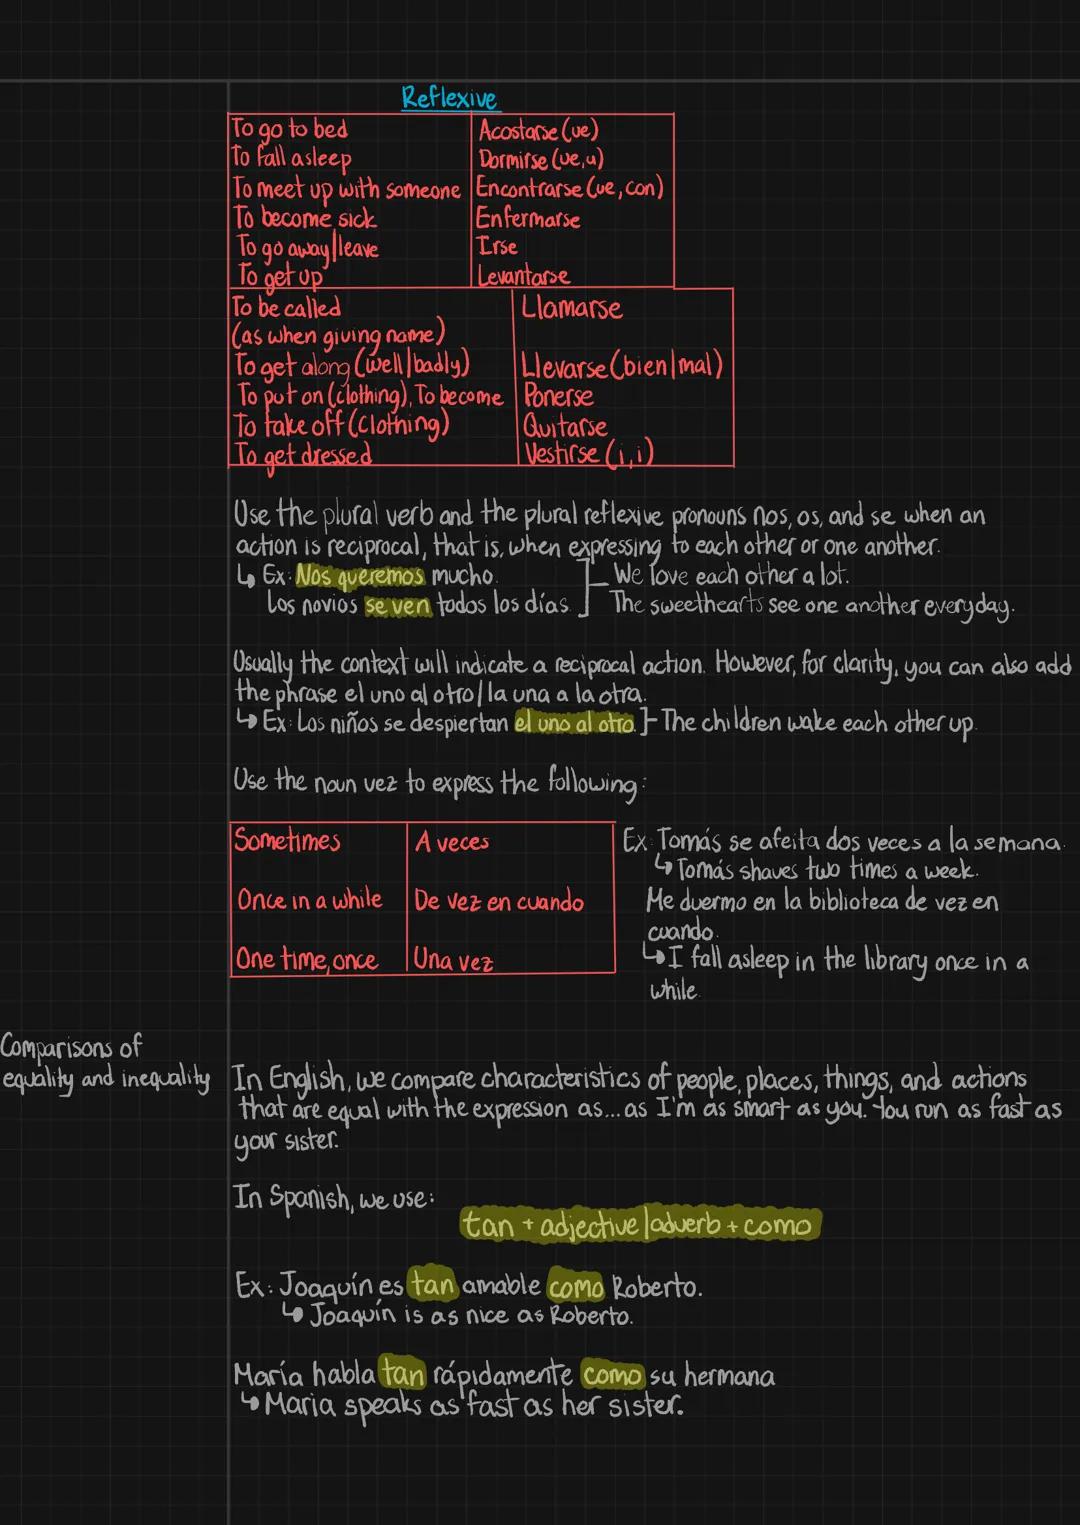 Reflexive
To go to bed Acostarse (ue)
To fall asleep Dormirse (ue, u)
To meet up with someone Encontrarse (ue, con)
To become sick Enfermarse
To go away/leave Irse
To get up Levantarse
To be called Llamarse
(as when giving name)
To get along (well/badly) Llevarse (bien/mal)
To put on (clothing), To become Ponerse
To take off (clothing) Quitarse
To get dressed Vestirse (i, i)
Use the plural verb and the plural reflexive pronouns nos, os, and se when an
action is reciprocal, that is, when expressing to each other or one another.
↳ Ex: Nos queremos mucho. We love each other a lot.
Los novios se ven todos los días. The sweethearts see one another everyday.
Usually the context will indicate a reciprocal action. However, for clarity, you can also add
the phrase el uno al otro/la una a la otra.
↳ Ex: Los niños se despiertan el uno al otro. The children wake each other up.
Use the noun vez to express the following:
Sometimes A veces
Once in a while De vez en cuando
One time, once Una vez
Ex: Tomás se afeita dos veces a la semana.
↳ Tomás shaves two times a week.
Me duermo en la biblioteca de vez en
cuando.
↳ I fall asleep in the library once in a
while.
Comparisons of
equality and inequality
In English, we compare characteristics of people, places, things, and actions
that are equal with the expression as... as I'm as smart as you. You run as fast as
your sister.
In Spanish, we use:
tan + adjective/adverb + como
Ex: Joaquín es tan amable como Roberto.
↳ Joaquín is as nice as Roberto.
María habla tan rápidamente como su hermana
↳ Maria speaks as fast as her sister.